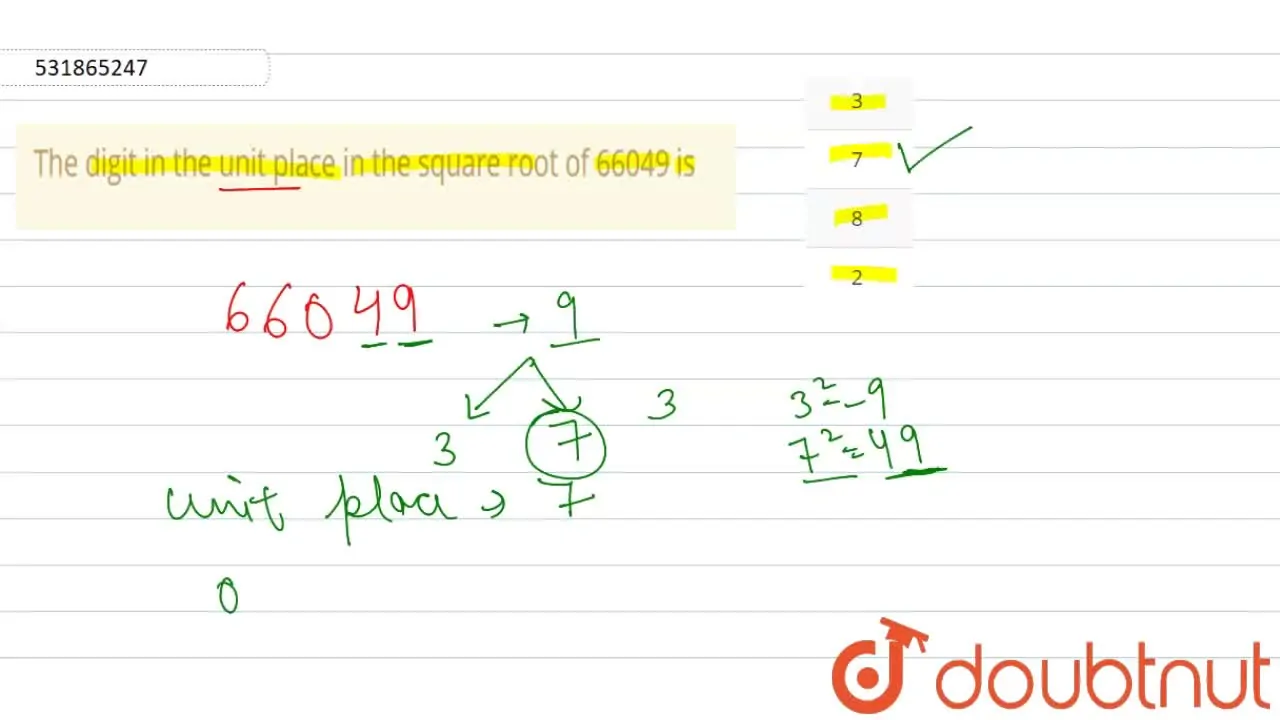 531865247
The digit in the unit place in the square root of 66049 is
3
7
8
2
66049 → 9
3 7 3
3² = 9
7² = 49
unit place → 7
0
doubtnut